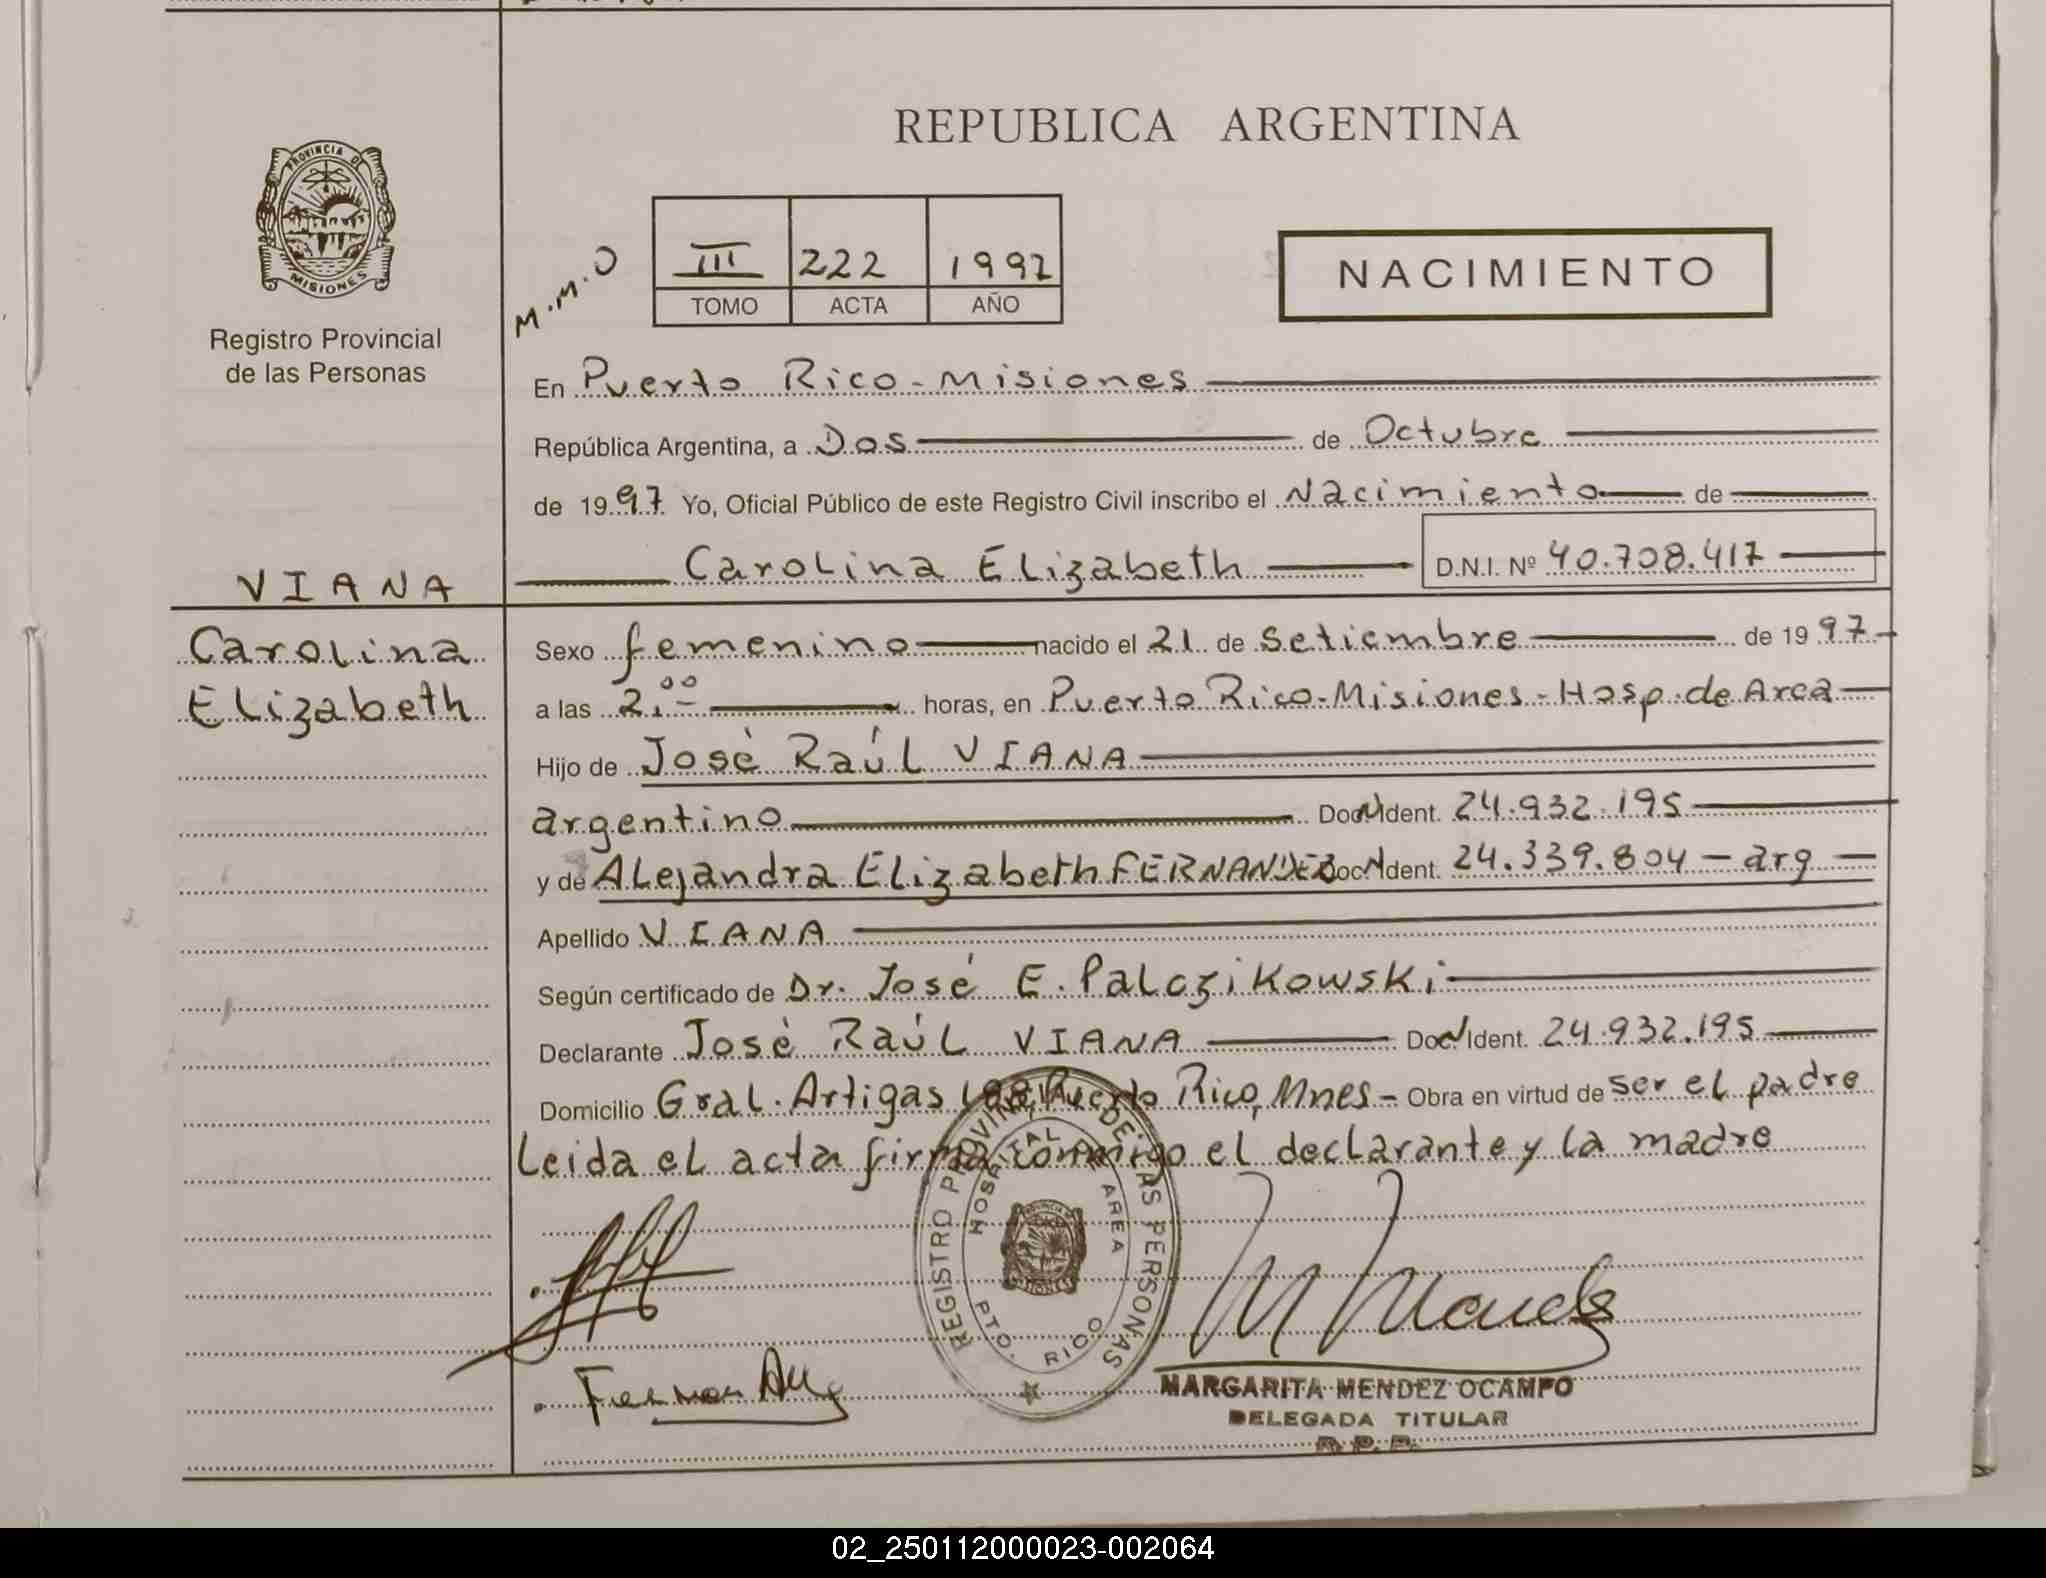 PROVINCIA DE
MISIONES
Registro Provincial
de las Personas
VIANA
Carolina
Elizabeth
REPUBLICA ARGENTINA
M.M.O
III 222 1997
TOMO ACTA AÑO
NACIMIENTO
En Puerto Rico - Misiones
República Argentina, a Dos de Octubre
de 1997 Yo, Oficial Público de este Registro Civil inscribo el Nacimiento de
Carolina Elizabeth D.N.I. Nº 40.708.417
Sexo femenino nacido el 21 de Setiembre de 1997
a las 2:00 horas, en Puerto Rico - Misiones - Hosp. de Area
Hijo de José Raúl VIANA
argentino Doc N Ident. 24.932.195
y de Alejandra Elizabeth FERNANDEZ Doc N Ident. 24.339.804 - arg
Apellido VIANA
Según certificado de Dr. José E. Palczikowski
Declarante José Raúl VIANA Doc N Ident. 24.932.195
Domicilio Gral. Artigas Puerto Rico, Mnes - Obra en virtud de ser el padre
Leida el acta firma conmigo el declarante y la madre
REGISTRO PROVINCIAL DE LAS PERSONAS
HOSPITAL DE AREA
PTO. RICO
MARGARITA MENDEZ OCAMPO
DELEGADA TITULAR
R. P. P.
02_250112000023-002064